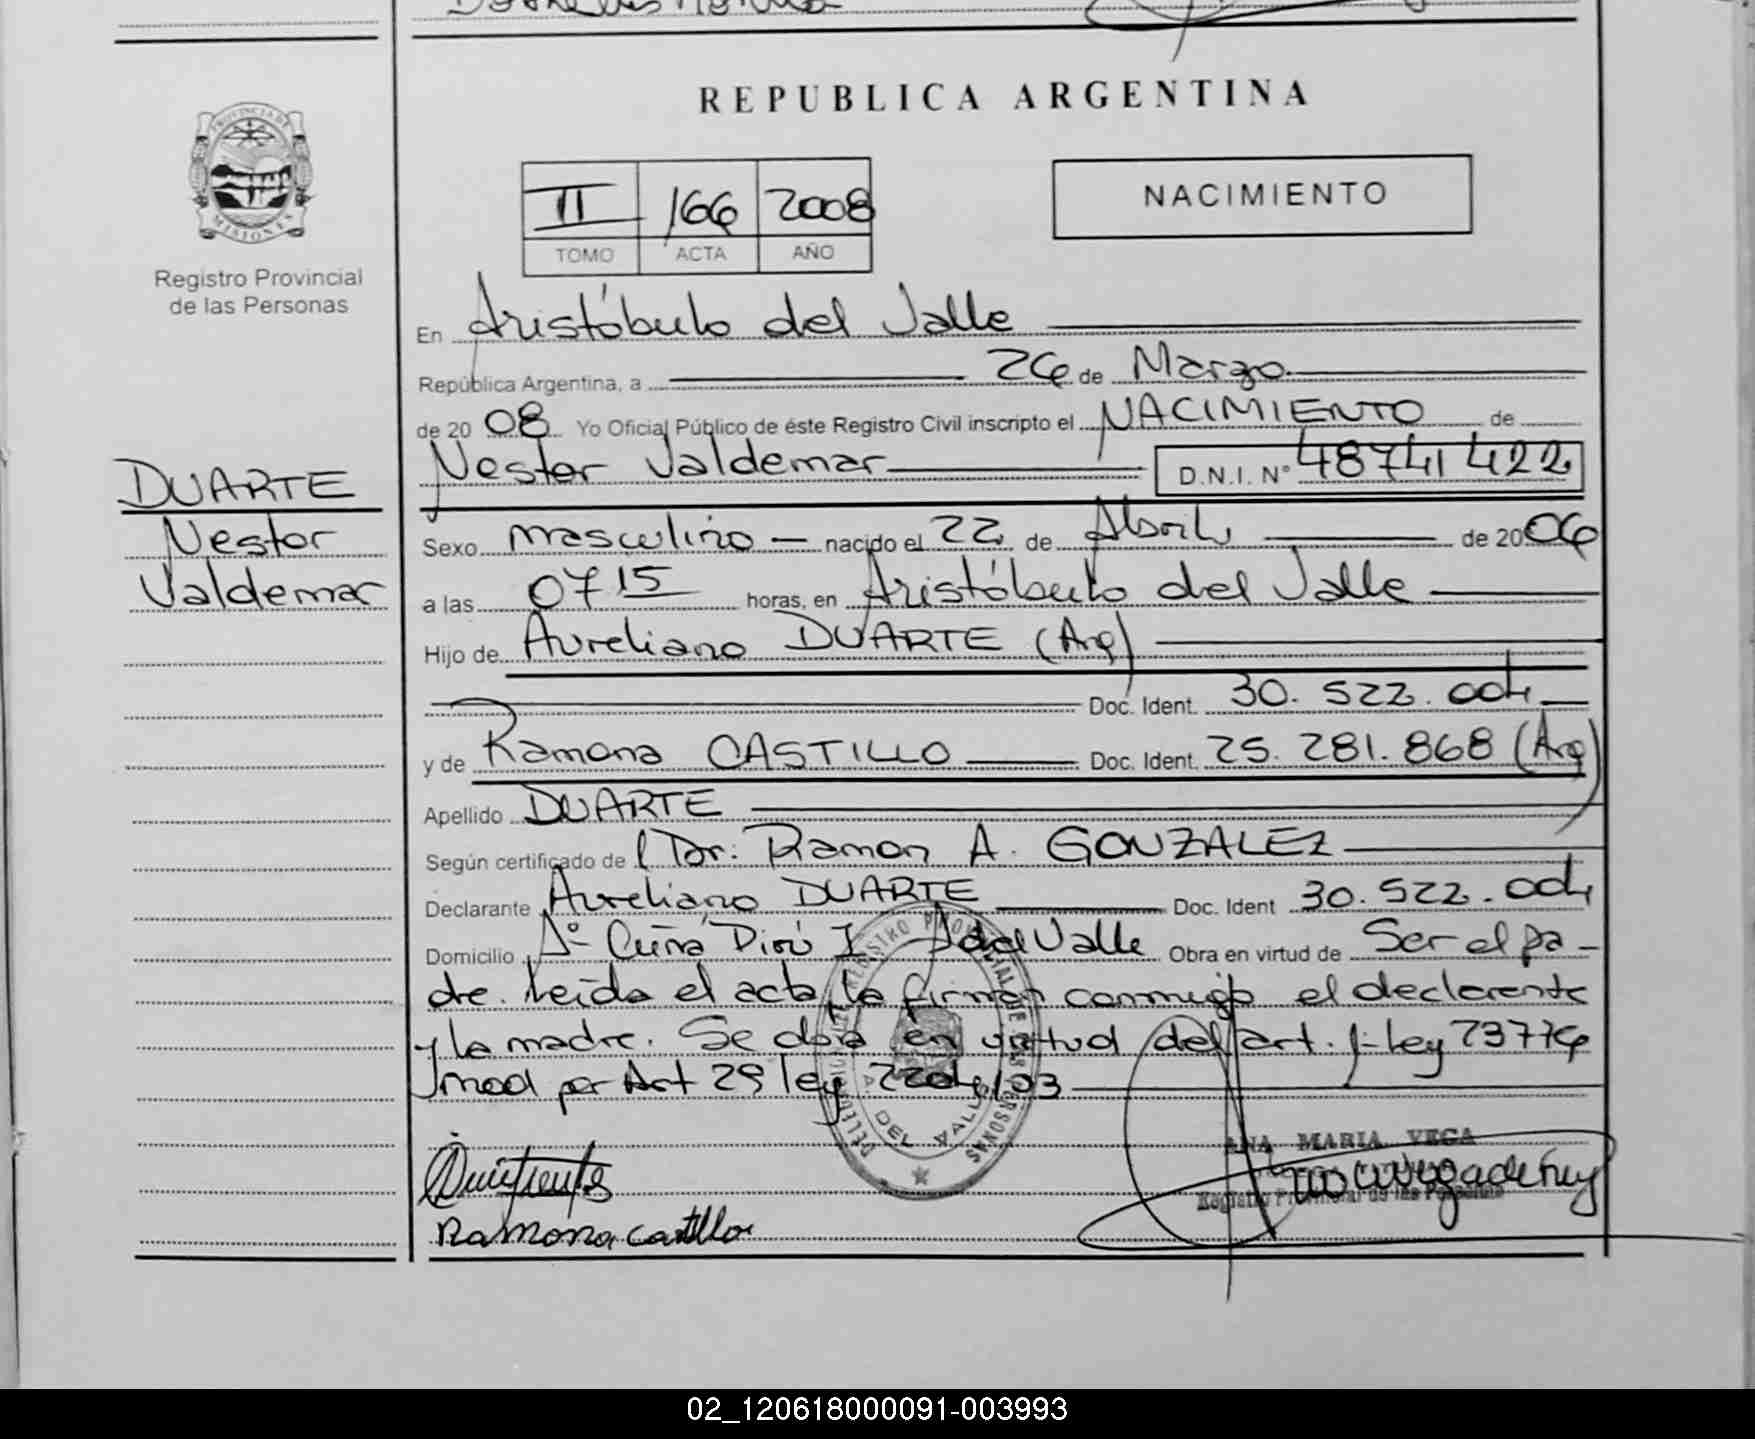 REPUBLICA ARGENTINA
PROVINCIA DE
MISIONES
Registro Provincial
de las Personas
II 166 2008
TOMO ACTA AÑO
NACIMIENTO
En Aristóbulo del Valle
República Argentina, a 26 de Marzo
de 2008 Yo Oficial Público de éste Registro Civil inscripto el NACIMIENTO de
Nestor Valdemar D.N.I. N° 48741422
DUARTE
Nestor
Valdemar
Sexo masculino nacido el 22 de Abril de 2006
a las 07 15 horas, en Aristóbulo del Valle
Hijo de Aureliano DUARTE (Arg)
Doc. Ident. 30.522.004
y de Ramona CASTILLO Doc. Ident. 25.281.868 (Arg)
Apellido DUARTE
Según certificado de l Dr. Ramon A. GONZALEZ
Declarante Aureliano DUARTE Doc. Ident 30.522.004
Domicilio Aº Cuña Pirú I A del Valle Obra en virtud de Ser el pa-
dre. Leida el acta, la firman conmigo el declarante
y la madre. Se obra en virtud del art. 1- Ley 23776
mod por Art 29 ley 2204/03
DEL VALLE
ANA MARIA VEGA
Registro Provincial de las Personas
Ramona Castillo
02_120618000091-003993